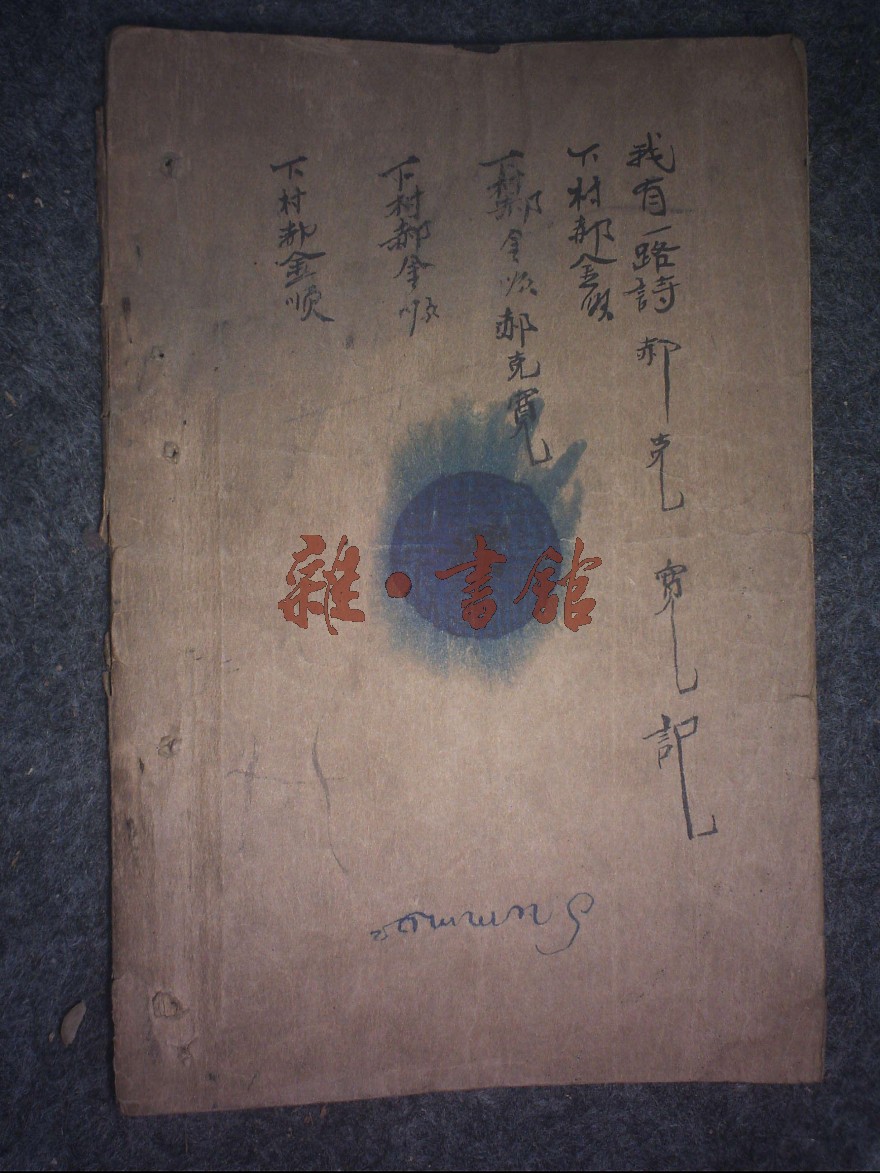 我有一路詩 郝克寬記
下村郝金順
下村郝金順 郝克寬
下村郝金順
下村郝金順
雜·書館